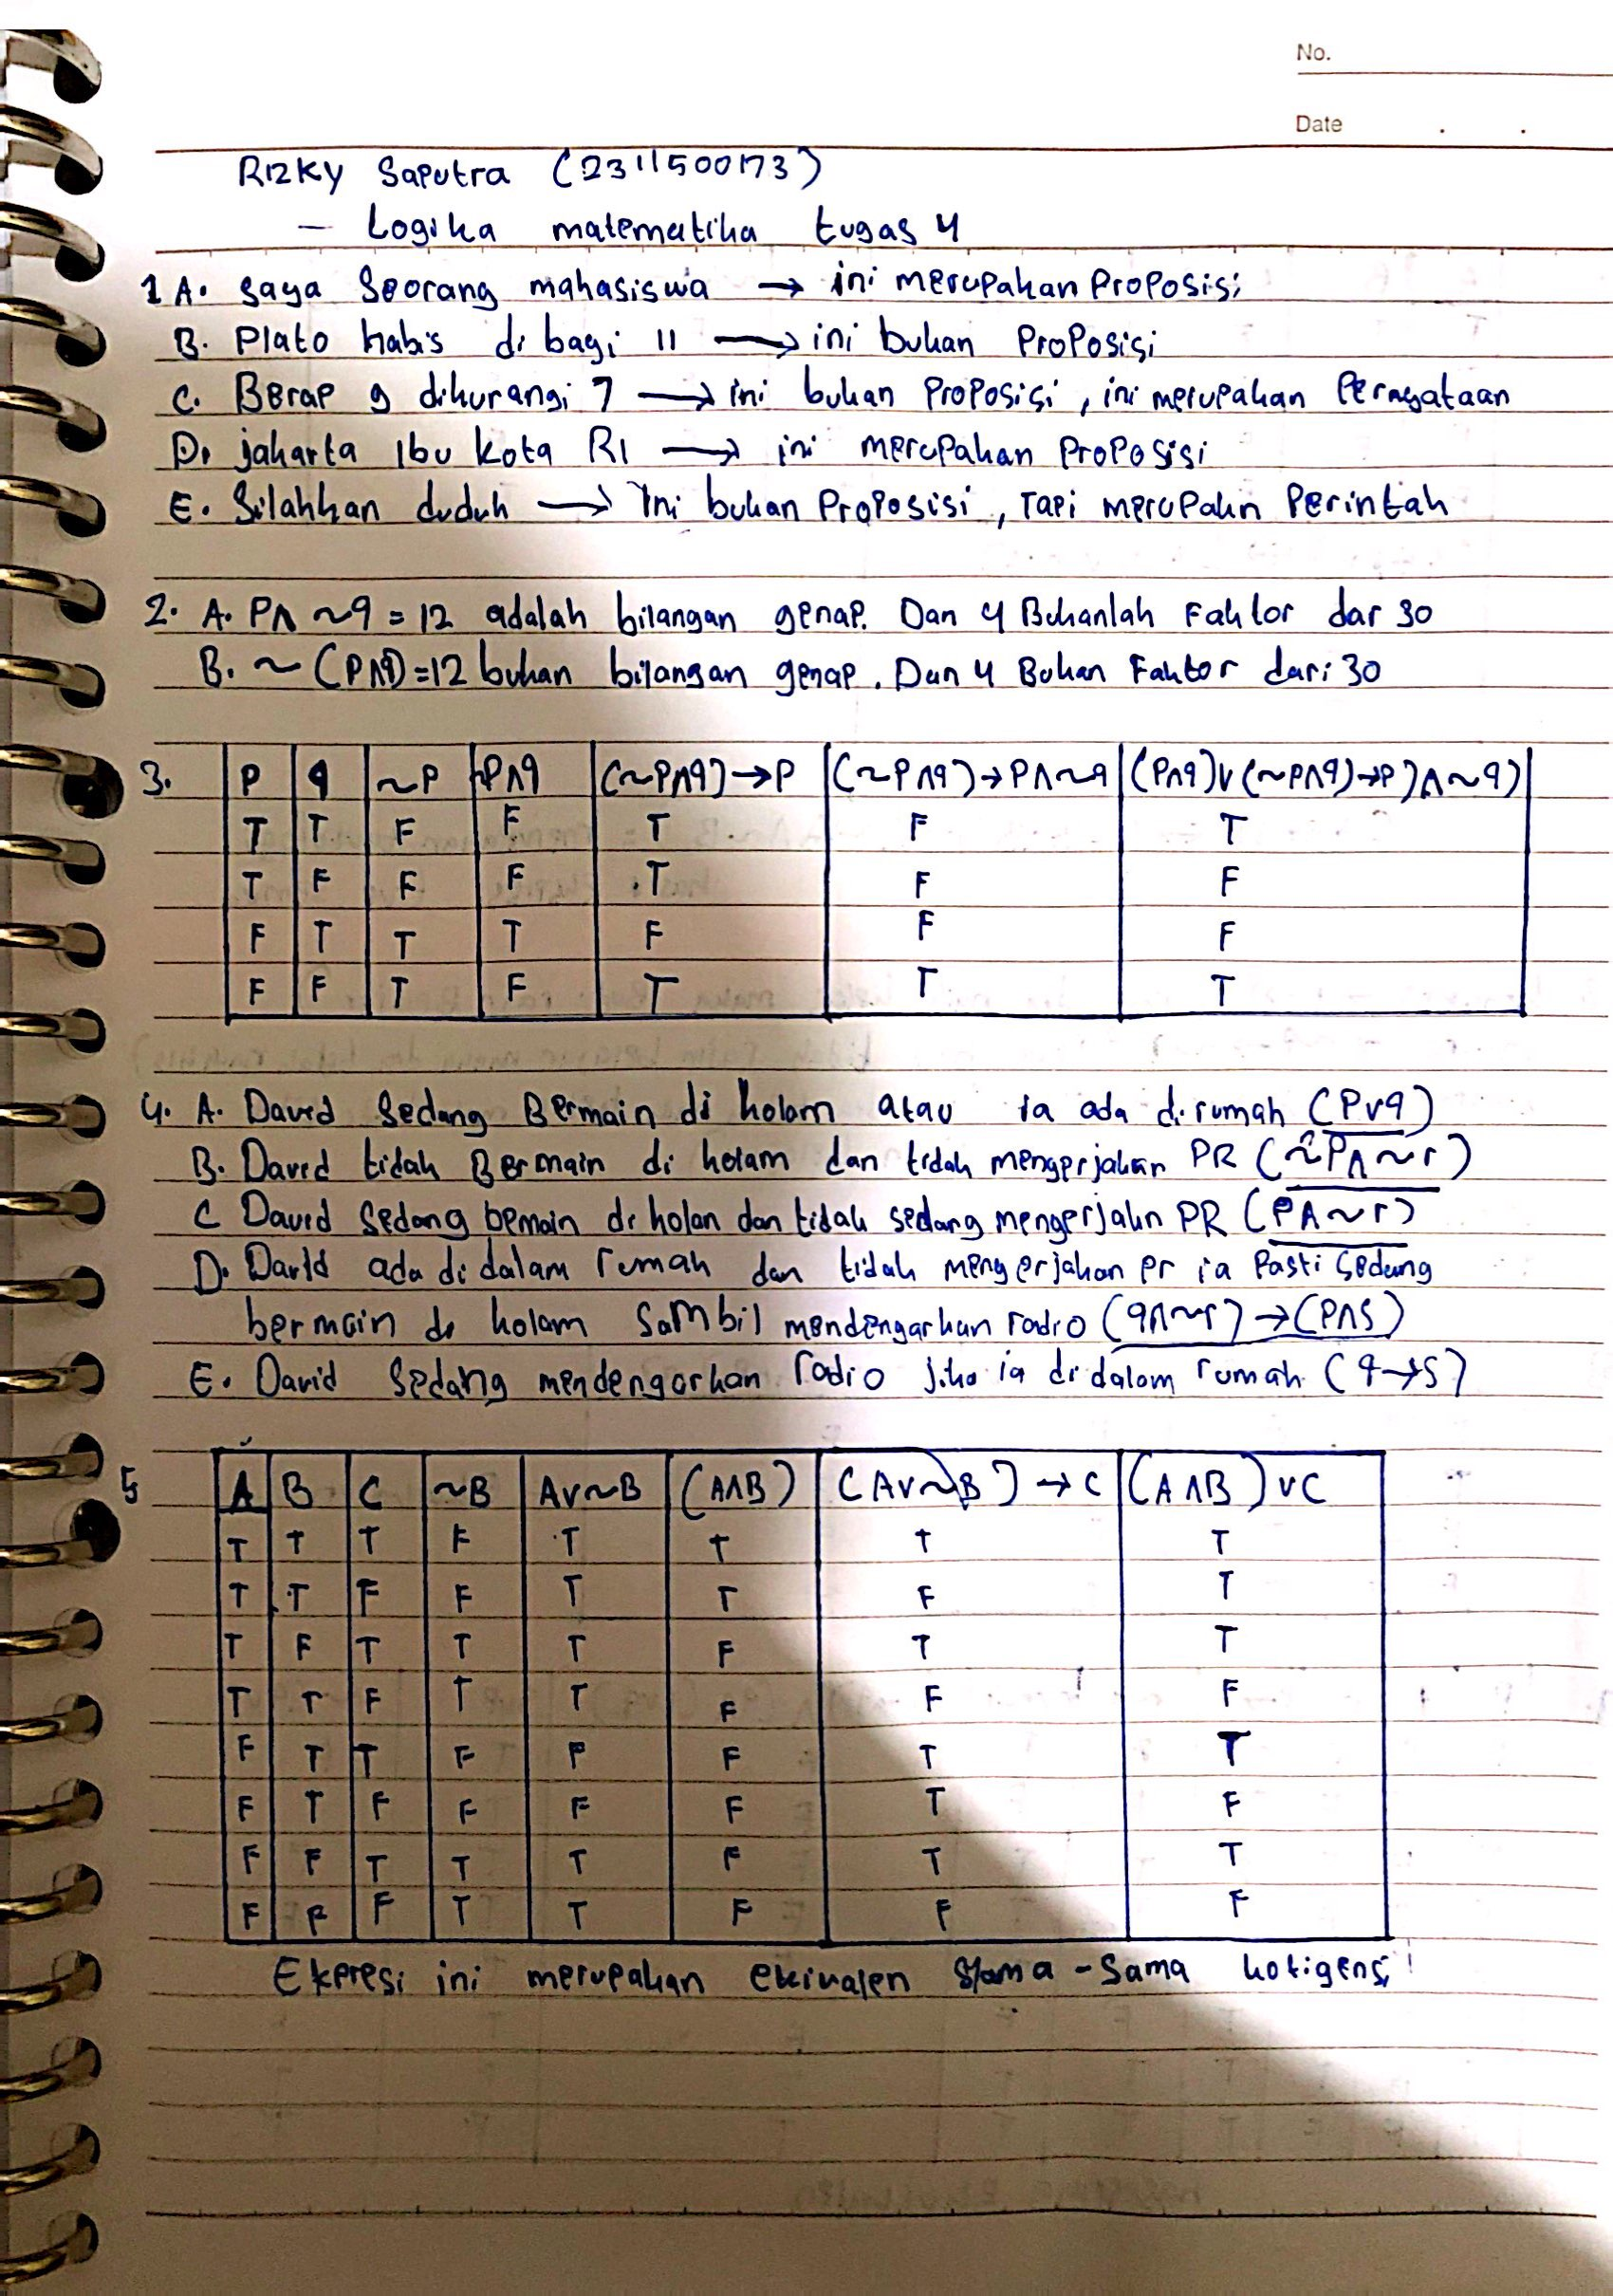 No.
Date
Rizky Saputra (2311500173)
— Logika matematika tugas 4
1 A. Saya Seorang mahasiswa → ini merupakan Proposisi
B. Plato habis di bagi 11 → ini bukan Proposisi
C. Berap 9 dikurangi 7 → ini bukan Proposisi, ini merupakan Pernyataan
D. jakarta Ibu kota RI → ini merupakan Proposisi
E. Silahkan duduk → Ini bukan Proposisi, Tapi merupakn Perintah
2. A. P∧ ~q = 12 adalah bilangan genap. Dan 4 Bukanlah Faktor dar 30
B. ~ (P∧q) = 12 bukan bilangan genap. Dan 4 Bukan Faktor dari 30
3. P q ~P ~P∧q (~P∧q)→P (~P∧q)→P∧~q (P∧q)∨(~P∧q)→P)∧~q)
T T F F T F T
T F F F T F F
F T T T F F F
F F T F T T T
4. A. David Sedang Bermain di kolam atau ia ada dirumah (P∨q)
B. David tidak Bermain di kolam dan tidak mengerjakan PR (~P∧~r)
C David Sedang bemain di kolan dan tidak sedang mengerjakn PR (P∧~r)
D. David ada di dalam rumah dan tidak mengerjakan pr ia Pasti Sedang
bermain di kolam Sambil mendengarkan radio (q∧~r)→(P∧S)
E. David Sedang mendengarkan radio jika ia di dalam rumah (q→S)
5 A B C ~B A∨~B (A∧B) (A∨~B)→C (A∧B)∨C
T T T F T T T T
T T F F T T F T
T F T T T F T T
T T F T T F F F
F T T F F F T T
F T F F F F T F
F F T T T F T T
F F F T T F F F
Ekpresi ini merupakan ekivalen Sama-Sama kotigensi